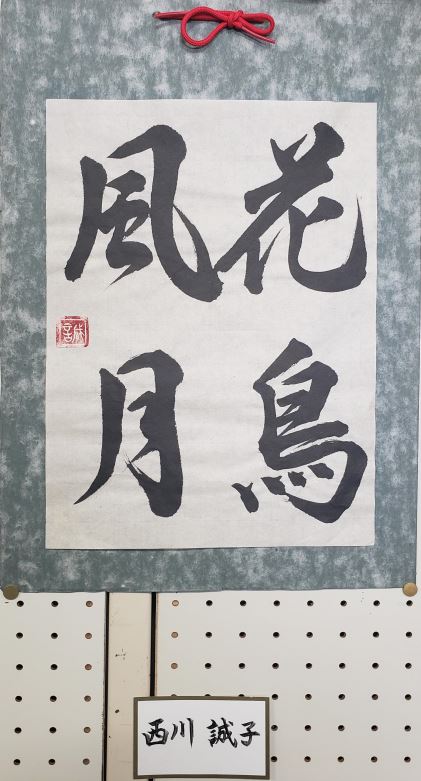 花鳥
風月
誠
西川 誠子